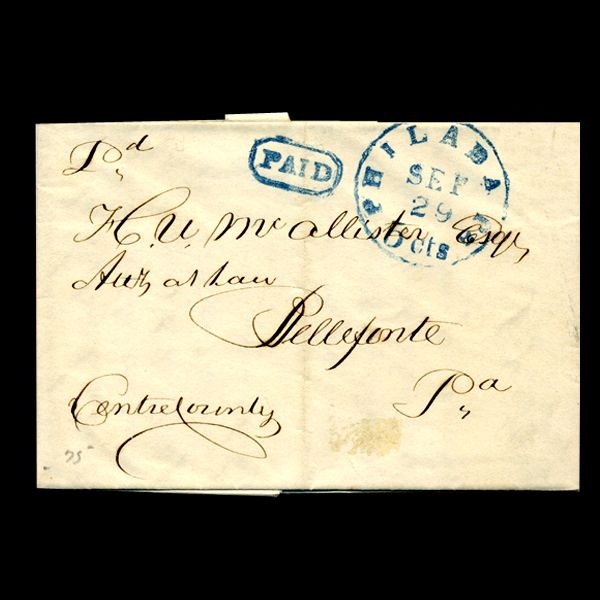 Pd
PAID
PHILADA Pa
SEP
29
5 cts
H. U. McAllister Esqr
Atty at Law
Bellefonte
Centre County
Pa
75